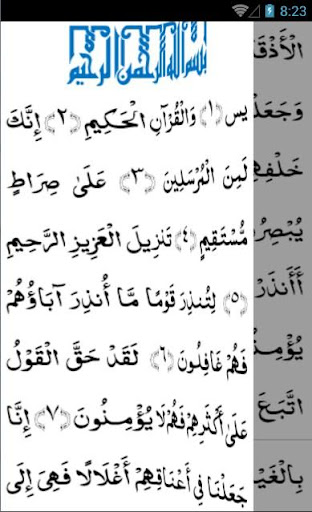 8:23
بسم الله الرحمن الرحيم
يس ﴿١﴾ وَالْقُرْآنِ الْحَكِيمِ ﴿٢﴾ إِنَّكَ
لَمِنَ الْمُرْسَلِينَ ﴿٣﴾ عَلَىٰ صِرَاطٍ
مُّسْتَقِيمٍ ﴿٤﴾ تَنزِيلَ الْعَزِيزِ الرَّحِيمِ
﴿٥﴾ لِتُنذِرَ قَوْمًا مَّا أُنذِرَ آبَاؤُهُمْ
فَهُمْ غَافِلُونَ ﴿٦﴾ لَقَدْ حَقَّ الْقَوْلُ
عَلَىٰ أَكْثَرِهِمْ فَهُمْ لَا يُؤْمِنُونَ ﴿٧﴾ إِنَّا
جَعَلْنَا فِي أَعْنَاقِهِمْ أَغْلَالًا فَهِيَ إِلَى
وَجَعَلْ
خَلْفِهِ
يُبْصِرُ
أَأَنذَرْ
يُؤْمِنُ
اتَّبَعَ
بِالْغَيْ